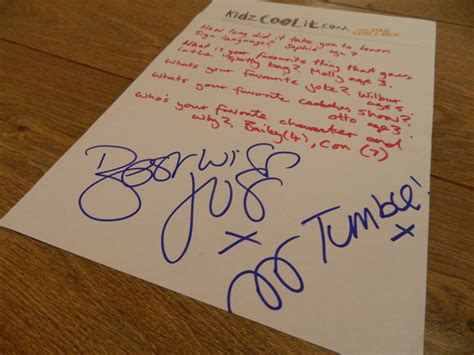 kidzCOOLit.com
How long did it take you to learn
sign language? Sophie age 7
What is your favourite thing that goes
in the spotty bag? Molly age 3.
Whats your favourite joke? Wilbur
age 5
Whats your favourite cbeebies show?
otto age 3.
Who's your favorite character and
why? Bailey(4), Con (7)
Best wishes
x
Mr Tumble!
x